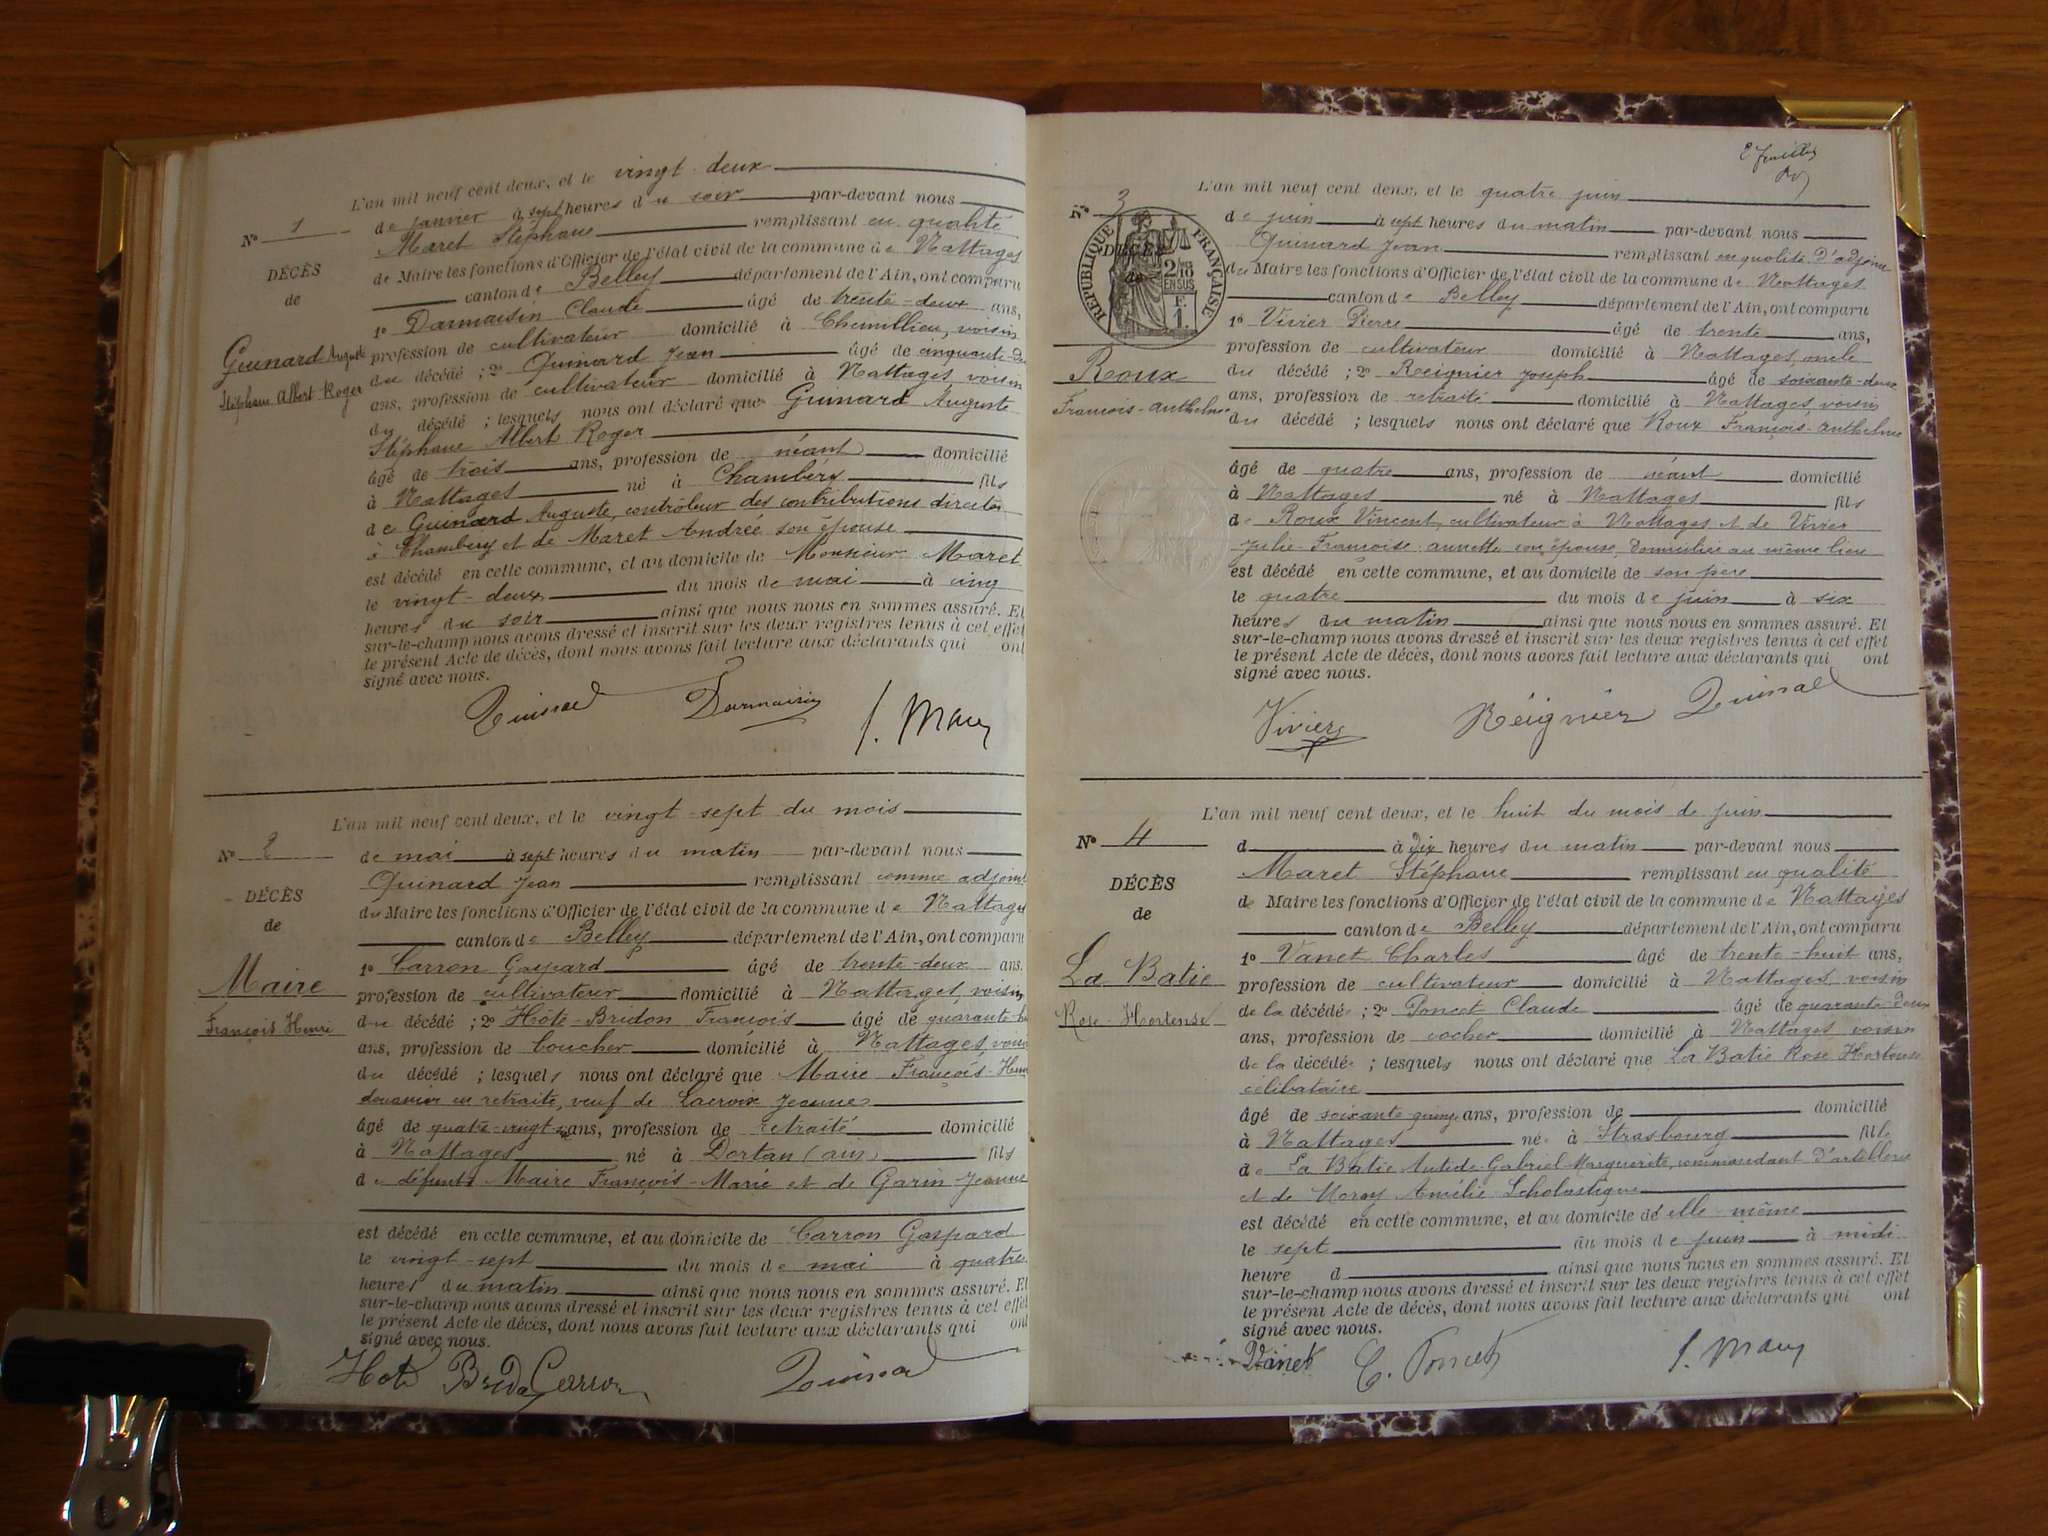 L'an mil neuf cent deux, et le vingt deux
de janvier à sept heures du soir par-devant nous
Maret Stéphane remplissant en qualité
de Maire les fonctions d'Officier de l'état civil de la commune de Nattages
canton de Belley département de l'Ain, ont comparu
1º Darmaisin Claude âgé de trente-deux ans,
profession de cultivateur domicilié à Chemillieu, voisin
du décédé ; 2º Quinard Jean âgé de cinquante-
ans, profession de cultivateur domicilié à Nattages, voisin
du décédé ; lesquels nous ont déclaré que Guinard Auguste
Stéphane Albert Roger
âgé de trois ans, profession de néant domicilié
à Nattages né à Chambéry fils
de Guinard Auguste, contrôleur des contributions directes
à Chambéry et de Maret Andrée son épouse
est décédé en cette commune, et au domicile de Monsieur Maret
le vingt-deux du mois de mai à cinq
heures du soir ainsi que nous nous en sommes assuré. Et
sur-le-champ nous avons dressé et inscrit sur les deux registres tenus à cet effet
le présent Acte de décès, dont nous avons fait lecture aux déclarants qui ont
signé avec nous.
Nº 1
DÉCÈS
de
Guinard Auguste
Stéphane Albert Roger
Quinard Darmaisin
L'an mil neuf cent deux, et le vingt-sept du mois
de mai à sept heures du matin par-devant nous
Quinard Jean remplissant comme adjoint
du Maire les fonctions d'Officier de l'état civil de la commune de Nattages
canton de Belley département de l'Ain, ont comparu
1º Carron Gaspard âgé de trente-deux ans.
profession de cultivateur domicilié à Nattages, voisin
du décédé ; 2º Hôte-Bridon François âgé de quarante-
ans, profession de boucher domicilié à Nattages, voisin
du décédé ; lesquels nous ont déclaré que Maire François-Henri
douanier en retraite, veuf de Lacroix Jeanne
âgé de quatre-vingt- ans, profession de retraité domicilié
à Nattages né à Dortan (ain) fils
de défunts Maire François-Marie et de Garin Jeanne
est décédé en cette commune, et au domicile de Carron Gaspard
le vingt-sept du mois de mai à quatre
heures du matin ainsi que nous nous en sommes assuré. Et
sur-le-champ nous avons dressé et inscrit sur les deux registres tenus à cet effet
le présent Acte de décès, dont nous avons fait lecture aux déclarants qui ont
signé avec nous.
Nº 2
DÉCÈS
de
Maire
François Henri
Hote Carron Quinard
L'an mil neuf cent deux, et le quatre juin
de juin à sept heures du matin par-devant nous
Quinard Jean remplissant en qualité d'adjoint
du Maire les fonctions d'Officier de l'état civil de la commune de Nattages
canton de Belley département de l'Ain, ont comparu
1º Vivier Pierre âgé de trente ans,
profession de cultivateur domicilié à Nattages, oncle
du décédé ; 2º Reignier Joseph âgé de soixante-deux
ans, profession de retraité domicilié à Nattages, voisin
du décédé ; lesquels nous ont déclaré que Roux François-Anthelme
âgé de quatre ans, profession de néant domicilié
à Nattages né à Nattages fils
de Roux Vincent, cultivateur à Nattages et de Vivier
Julie-Françoise annette son épouse, domiciliée au même lieu
est décédé en cette commune, et au domicile de son père
le quatre du mois de juin à six
heures du matin ainsi que nous nous en sommes assuré. Et
sur-le-champ nous avons dressé et inscrit sur les deux registres tenus à cet effet
le présent Acte de décès, dont nous avons fait lecture aux déclarants qui ont
signé avec nous.
Nº 3
DÉCÈS
de
RÉPUBLIQUE FRANÇAISE
2/10 EN SUS
F.
1.
Roux
François-Anthelme
Vivier Reignier Quinard
L'an mil neuf cent deux, et le huit du mois de juin
d à dix heures du matin par-devant nous
Maret Stéphane remplissant en qualité
de Maire les fonctions d'Officier de l'état civil de la commune de Nattages
canton de Belley département de l'Ain, ont comparu
1º Vanet Charles âgé de trente-huit ans,
profession de cultivateur domicilié à Nattages, voisin
de la décédée ; 2º Poncet Claude âgé de quarante-deux
ans, profession de cocher domicilié à Nattages voisin
de la décédée ; lesquels nous ont déclaré que La Batie Rose Hortense
célibataire
âgé de soixante quinze ans, profession de domicilié
à Nattages née à Strasbourg fille
de La Batie Antide-Gabriel-Marguerite, commandant d'artillerie
et de Noray Amélie Scholastique
est décédé en cette commune, et au domicile de elle même
le sept du mois de juin à midi
heure d ainsi que nous nous en sommes assuré. Et
sur-le-champ nous avons dressé et inscrit sur les deux registres tenus à cet effet
le présent Acte de décès, dont nous avons fait lecture aux déclarants qui ont
signé avec nous.
Nº 4
DÉCÈS
de
La Batie
Rose-Hortense
Vanet C. Poncet